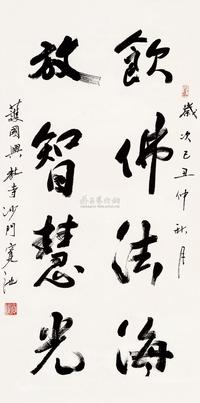 歲次己丑仲秋月
飲佛法海
放智慧光
護國興教寺沙門寬池